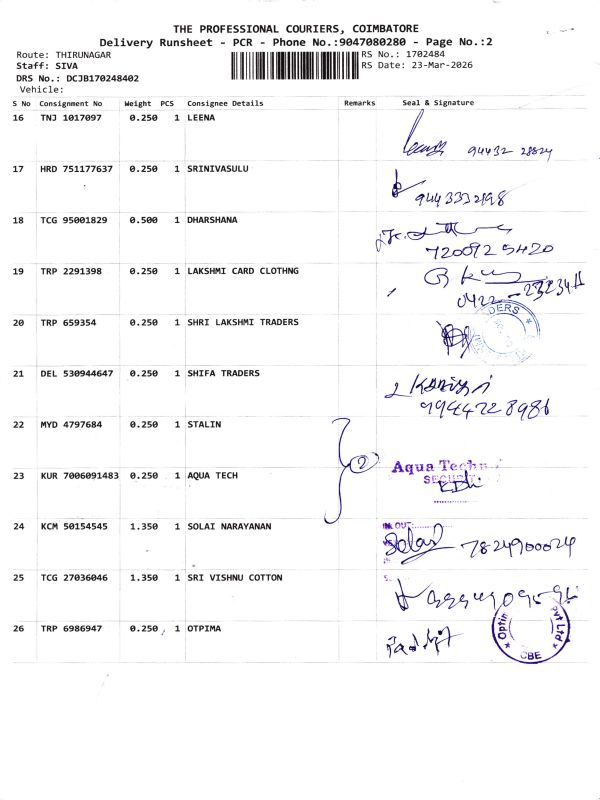 THE PROFESSIONAL COURIERS, COIMBATORE
Delivery Runsheet - PCR - Phone No.:9047080280 - Page No.:2
Route: THIRUNAGAR
RS No.: 1702484
Staff: SIVA
RS Date: 23-Mar-2026
DRS No.: DCJB170248402
Vehicle:
S No Consignment No Weight PCS Consignee Details Remarks Seal & Signature
16 TNJ 1017097 0.250 1 LEENA
94432 28824
17 HRD 751177637 0.250 1 SRINIVASULU
9443332198
18 TCG 95001829 0.500 1 DHARSHANA
720092 5420
19 TRP 2291398 0.250 1 LAKSHMI CARD CLOTHNG
0422
20 TRP 659354 0.250 1 SHRI LAKSHMI TRADERS
21 DEL 530944647 0.250 1 SHIFA TRADERS
9944728981
22 MYD 4797684 0.250 1 STALIN
2
23 KUR 7006091483 0.250 1 AQUA TECH
Aqua Techn
24 KCM 50154545 1.350 1 SOLAI NARAYANAN
OUT
Solai 7824900024
25 TCG 27036046 1.350 1 SRI VISHNU COTTON
26 TRP 6986947 0.250 1 OTPIMA
Optim Pvt Ltd
CBE